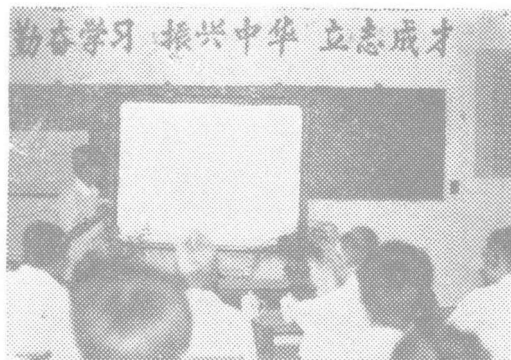 勤奋学习 振兴中华 立志成才